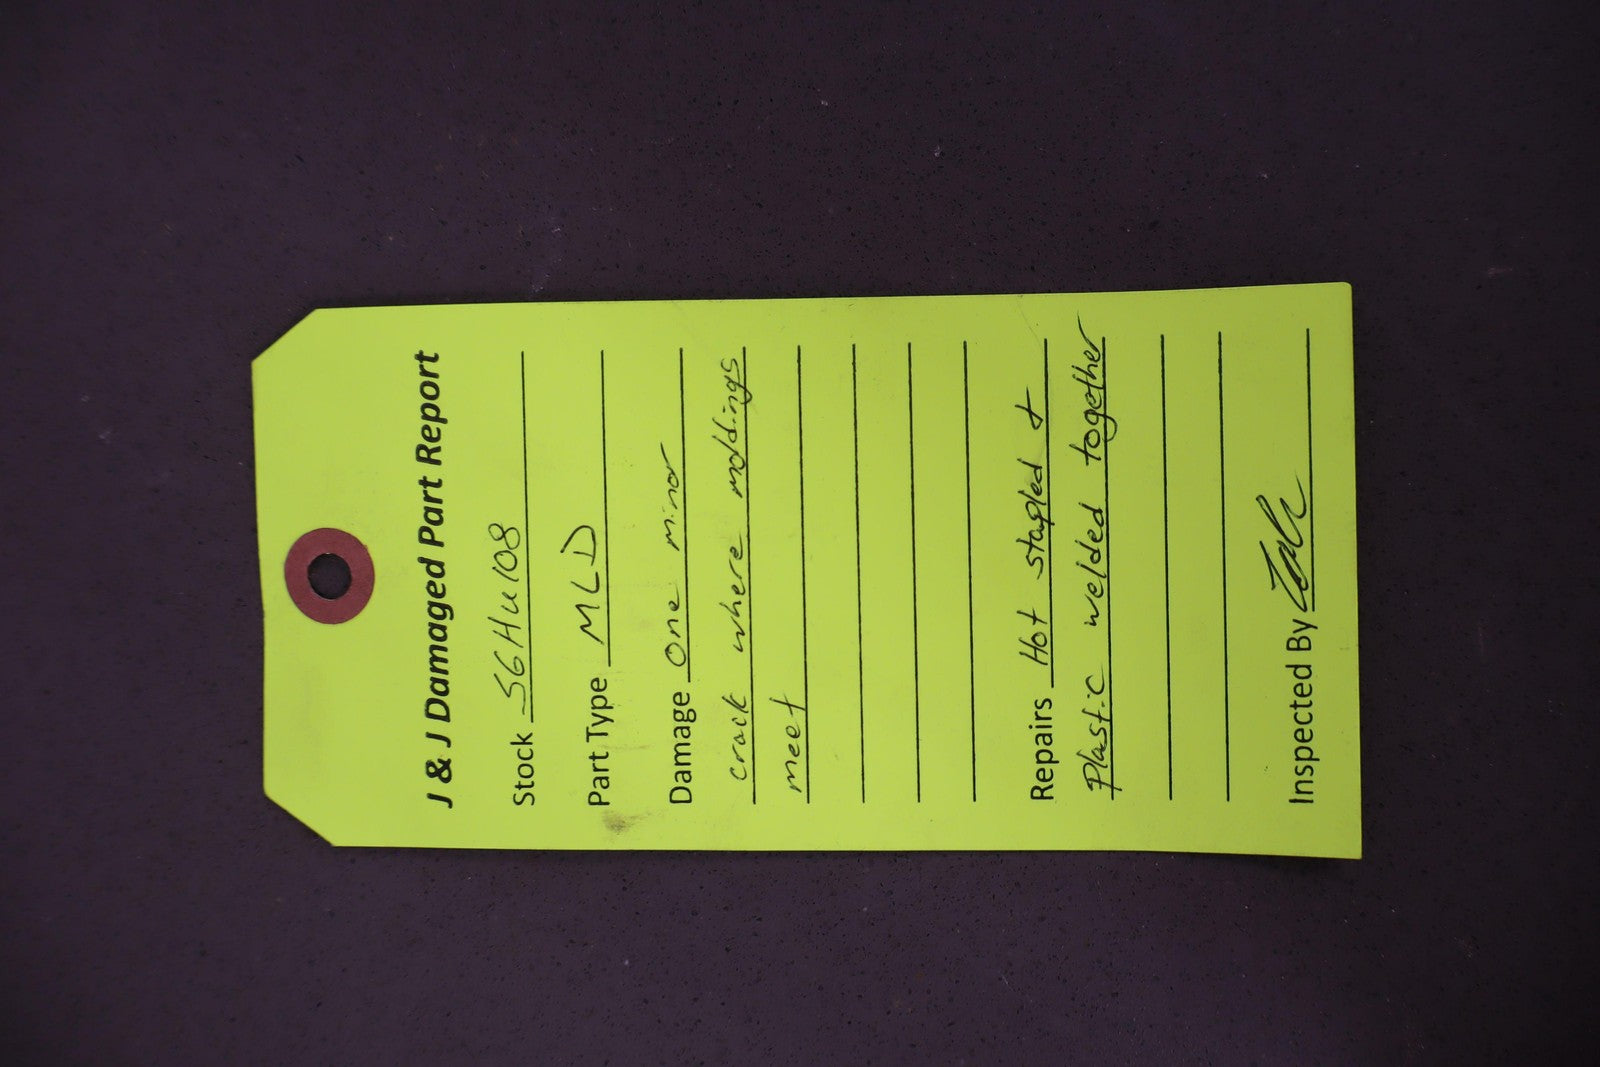 J & J Damaged Part Report
Stock SGHu108
Part Type MLD
Damage One minor
crack where moldings
meet
Repairs Hot stapled +
Plastic welded together
Inspected By